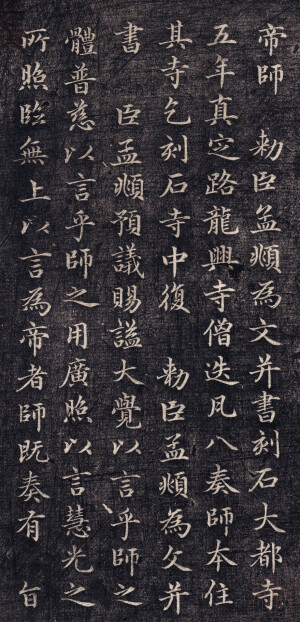 帝師 勅臣孟頫為文并書刻石大都寺
五年真定路龍興寺僧迭凡八奏師本住
其寺乞刻石寺中復 勅臣孟頫為文并
書 臣孟頫預議賜謚大覺以言乎師之
體普慈以言乎師之用廣照以言慧光之
所照臨無上以言為帝者師既奏有 旨